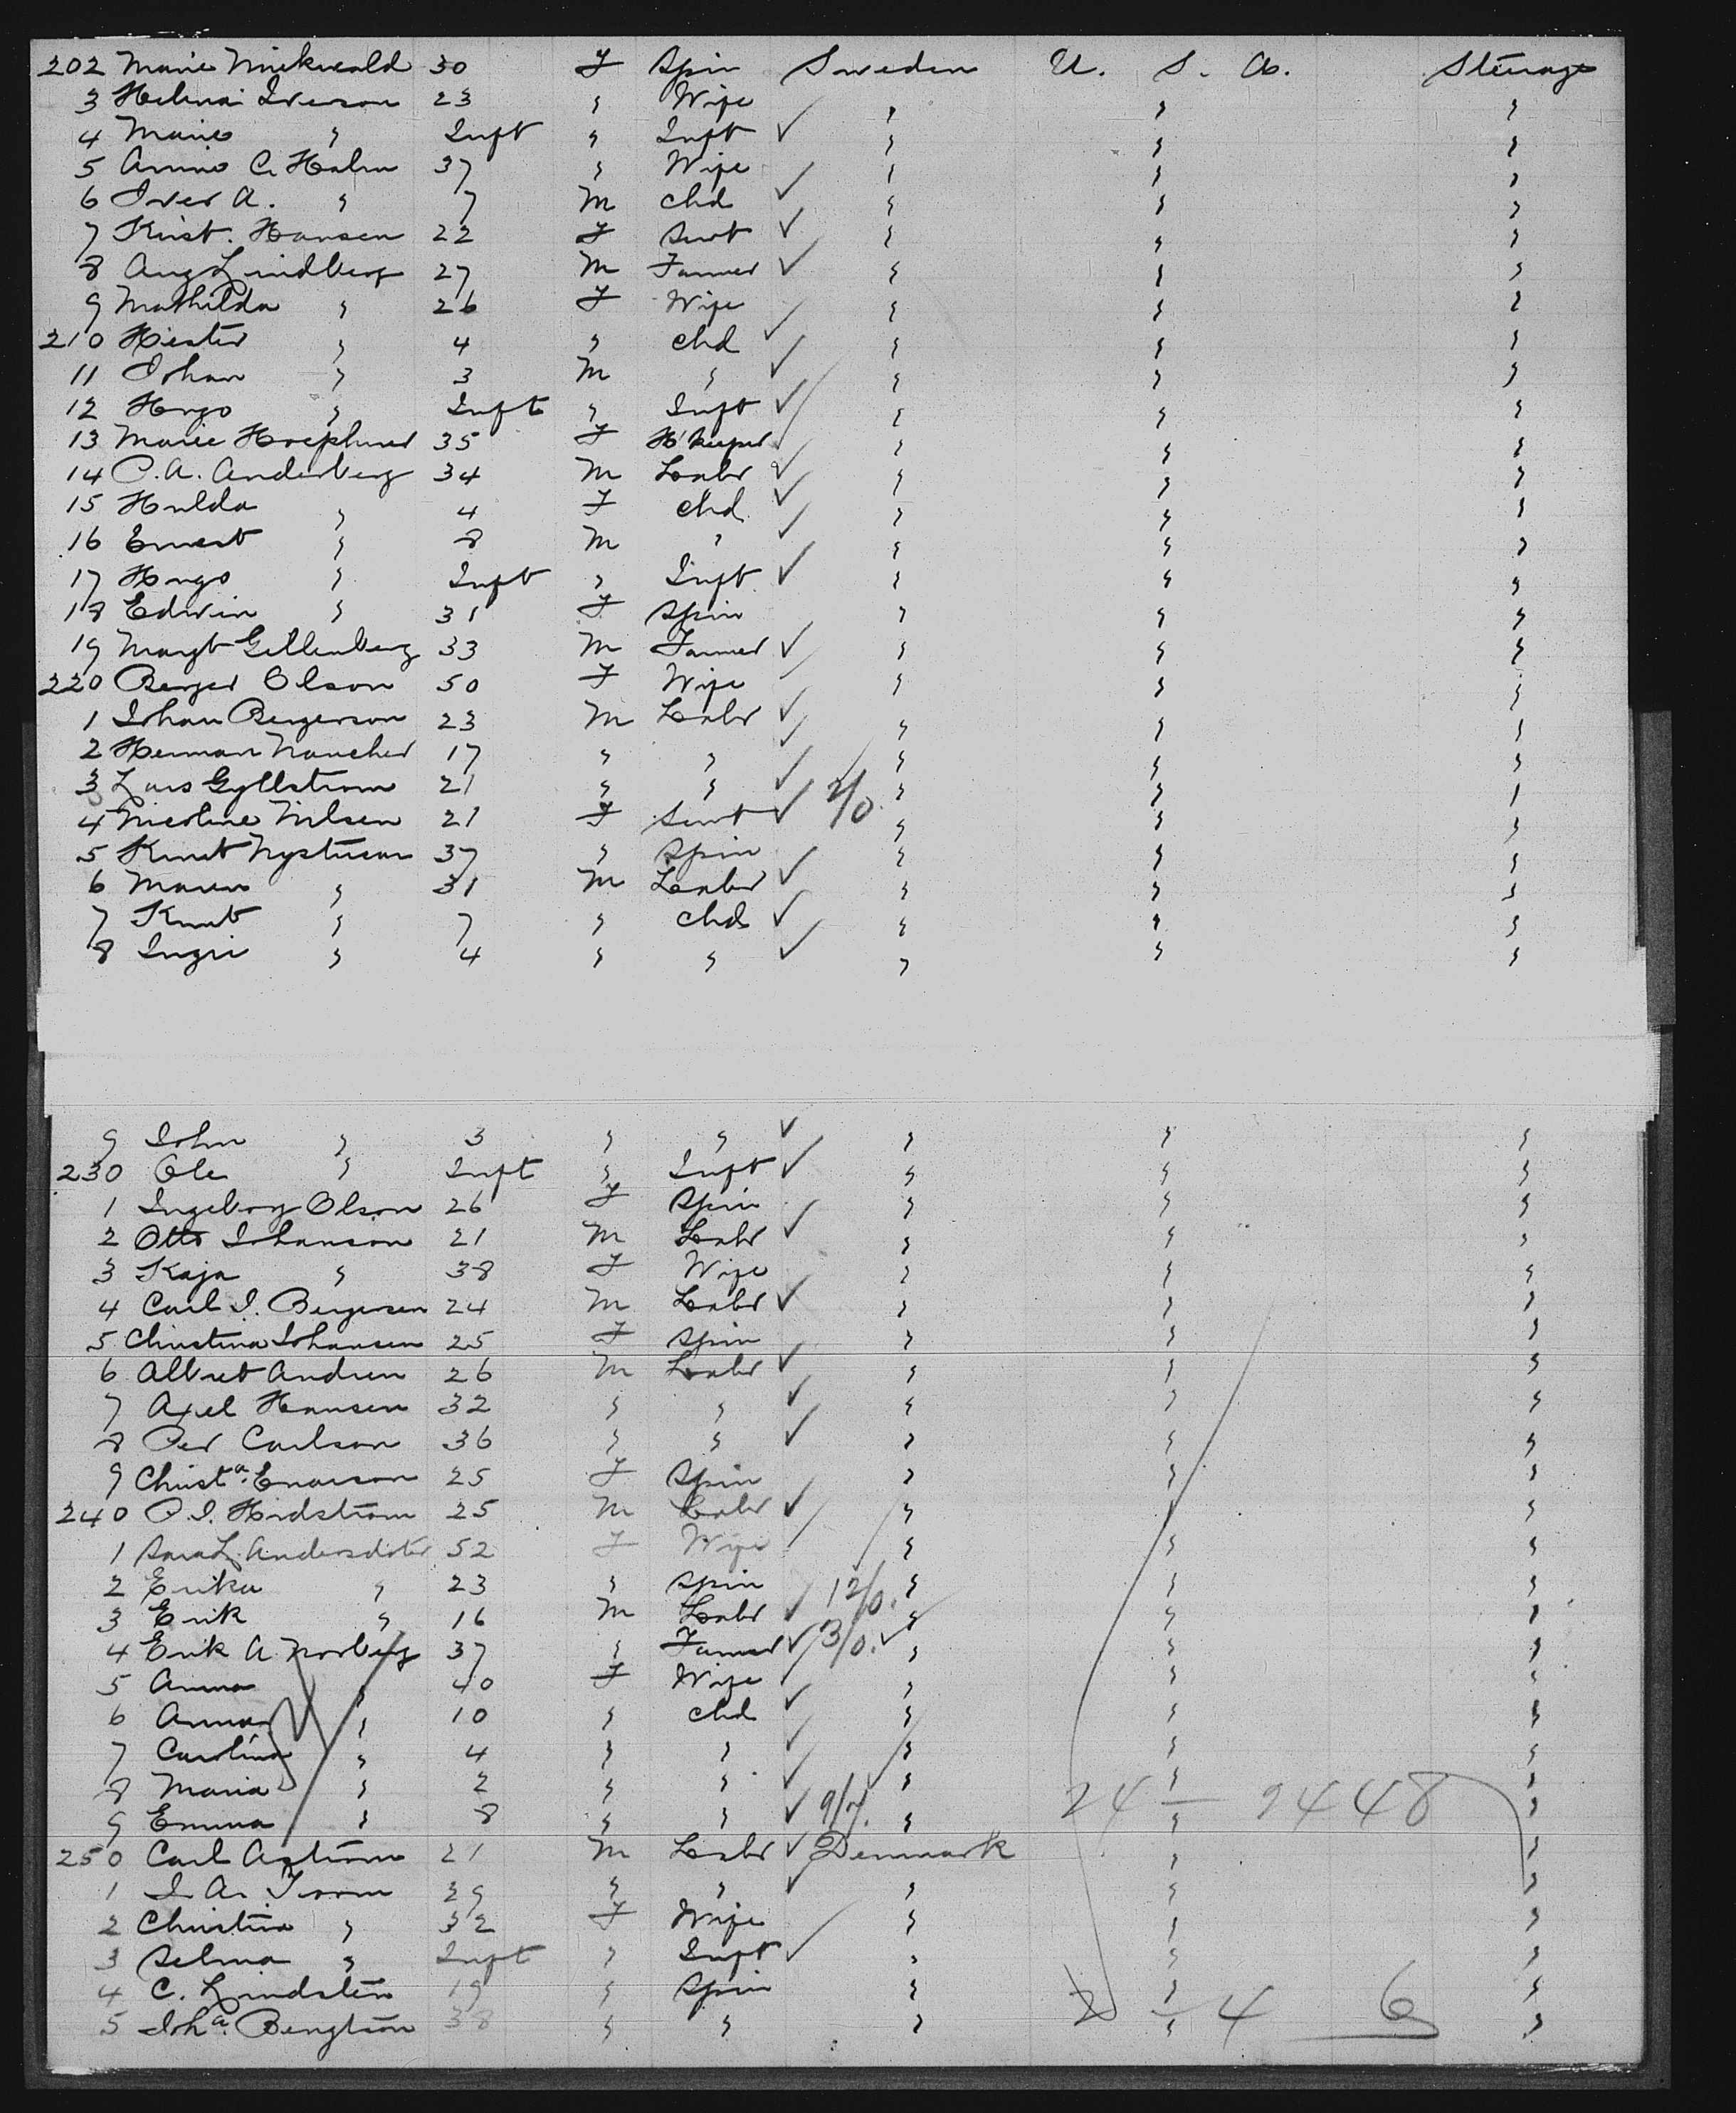 202 Marie Mickwald 30 F Spin Sweden U. S. A. Steerage
3 Helma Iverson 23 " Wife " " "
4 Marie " Inft " Inft ✓ " " "
5 Anna C. Holm 37 " Wife " " "
6 Iver A. " 7 M chd ✓ " " "
7 Krist. Hansen 22 F Servt ✓ " " "
8 Aug Lindberg 27 M Farmer ✓ " " "
9 Mathilda " 26 F Wife " " "
210 Hester " 4 " chd ✓ " " "
11 Johan " 3 M " ✓ " " "
12 Hugo " Inft " Inft ✓ " " "
13 Marie 35 F H'keeper " " "
14 P. A. Anderberg 34 M Labr ✓ " " "
15 Hulda " 4 F chd ✓ " " "
16 Ernest " 8 M " ✓ " " "
17 Hugo " Inft " Inft ✓ " " "
18 Edwin " 31 F Spin " " "
19 Margt Gellenberg 33 M Farmer ✓ " " "
220 Berger Olson 50 F Wife " " "
1 Johan Bergerson 23 M Labr ✓ " " "
2 Herman 17 " " ✓ " " "
3 Lars Gyllstrom 21 " " ✓ 2/0. " " "
4 Nicoline Nilsen 21 F Servt ✓ " " "
5 Knut Nystuean 37 " Spin " " "
6 Maren " 31 M Labr ✓ " " "
7 Knut " 7 " chd ✓ " " "
8 Ingri " 4 " " ✓ " " "
9 John " 3 " " ✓ " " "
230 Ole " Inft " Inft ✓ " " "
1 Ingeborg Olson 26 F Spin " " "
2 Otto Johanson 21 M Labr ✓ " " "
3 Kaja " 38 F Wife " " "
4 Carl J. Bergersen 24 M Labr ✓ " " "
5 Christina Johansen 25 F Spin " " "
6 Albret Andren 26 M Labr ✓ " " "
7 Axel Hansen 32 " " ✓ " " "
8 Per Carlson 36 " " ✓ " " "
9 Christa. Enarson 25 F Spin " " "
240 P. J. Hidstrom 25 M Labr ✓ " " "
1 Sara L. Andersdoter 52 F Wife " " "
2 Erika " 23 " Spin 12/0. " " "
3 Erik " 16 M Labr ✓ " " "
4 Erik A Norberg 37 " Farmer ✓ 3/0. ✓ " " "
5 Anna " 40 F Wife " " "
6 Anna " 10 " chd ✓ " " "
7 Carolina " 4 " " ✓ " " "
8 Maria " 2 " " ✓ " 24 — 2448 " "
9 Emma " 8 " " ✓ 9/7. " " "
250 Carl Agstrom 21 M Labr ✓ Denmark " "
1 J. A. Troom 29 " " ✓ " " "
2 Christina " 32 F Wife " " "
3 Selma " Inft " Inft ✓ " " "
4 C. Lindsten 19 " Spin " " "
5 Joha. Bengtson 38 " " " 2 — 4 6 " "